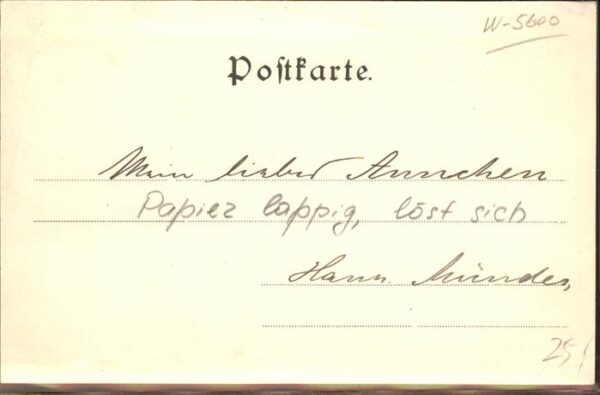 W-5600
Postkarte.
Mein liebes Annchen
Papier lappig, löst sich
Hann Münden
25